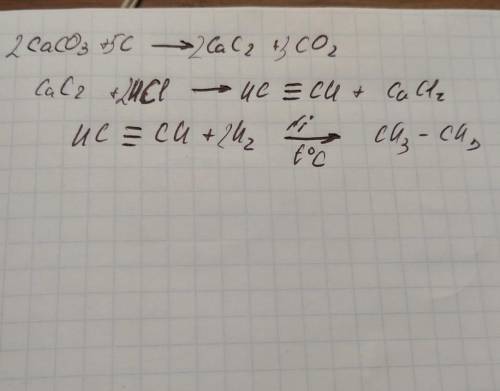 2CaCO₃ +5C → 2CaC₂ +3CO₂
CaC₂ +2HCl → HC ≡ CH + CaCl₂
HC ≡ CH + 2H₂ Ni/t°C → CH₃ – CH₃